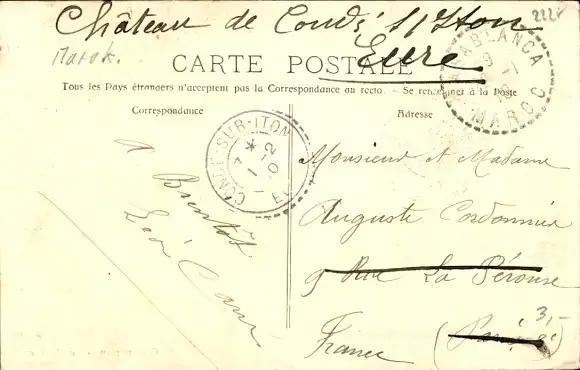 Château de Condé s/Iton
Eure
2128
Marok.
CARTE POSTALE
Tous les Pays étrangers n'acceptent pas la Correspondance au recto. - Se renseigner à la Poste
Correspondance
Adresse
CASABLANCA
MAROC
CONDÉ-SUR-ITON
A Bientôt
Monsieur et Madame
Auguste Cordonnier
9 Rue La Pérouse
(Paris
France
3,-